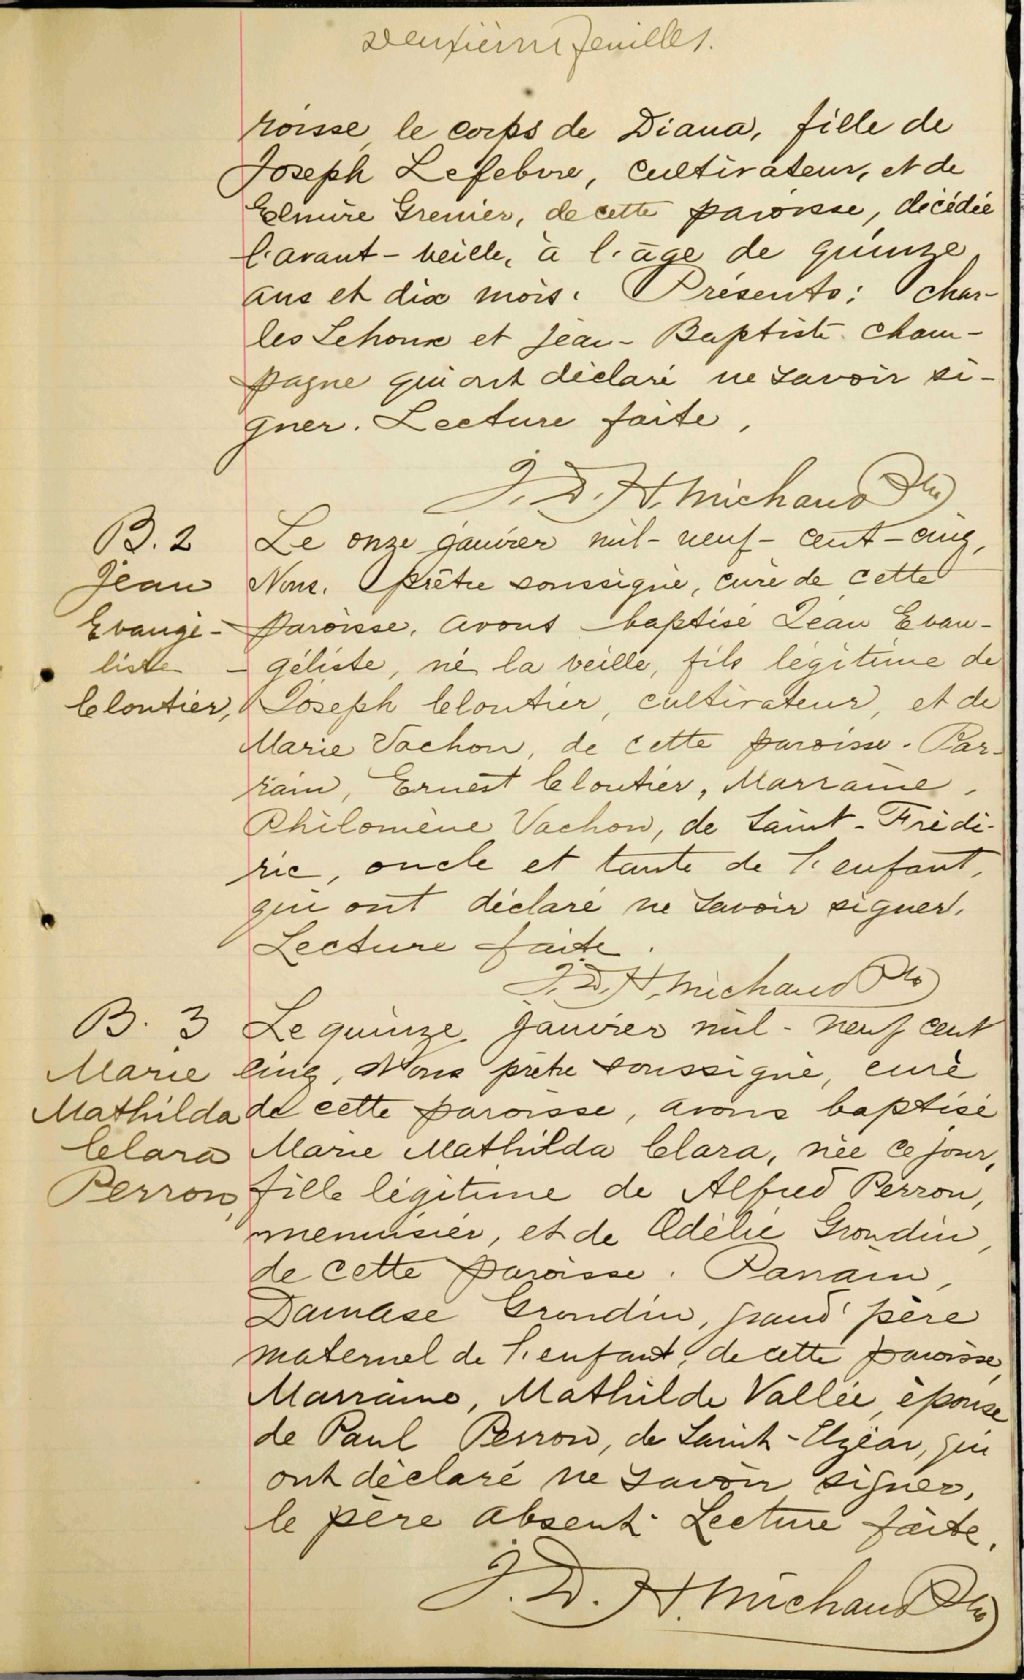 Deuxième feuillet.
roisse, le corps de Diana, fille de
Joseph Lefebvre, cultivateur, et de
Elmire Grenier, de cette paroisse, décédée
l'avant-veille, à l'âge de quinze
ans et dix mois. Présents: Char-
les Lehoux et Jean-Baptiste Cham-
pagne qui ont déclaré ne savoir si-
gner. Lecture faite,
J. D. H. Michaud Ptre
B. 2
Jean
Evangé-
liste
Cloutier,
Le onze janvier mil-neuf-cent-cinq,
Nous, prêtre soussigné, curé de cette
paroisse, avons baptisé Jean Evan-
géliste, né la veille, fils légitime de
Joseph Cloutier, cultivateur, et de
Marie Vachon, de cette paroisse. Par-
rain, Ernest Cloutier, Marraine,
Philomène Vachon, de Saint-Frédé-
ric, oncle et tante de l'enfant,
qui ont déclaré ne savoir signer.
Lecture faite.
J. D. H. Michaud Ptre
B. 3
Marie
Mathilda
Clara
Perron,
Le quinze janvier mil-neuf cent
cinq, Nous prêtre soussigné, curé
de cette paroisse, avons baptisé
Marie Mathilda Clara, née ce jour,
fille légitime de Alfred Perron,
menuisier, et de Odélie Grondin,
de cette paroisse. Parrain,
Damase Grondin, grand'père
maternel de l'enfant, de cette paroisse,
Marraine, Mathilde Vallée, épouse
de Paul Perron, de Saint-Elzéar, qui
ont déclaré ne savoir signer,
le père absent. Lecture faite.
J. D. H. Michaud Ptre